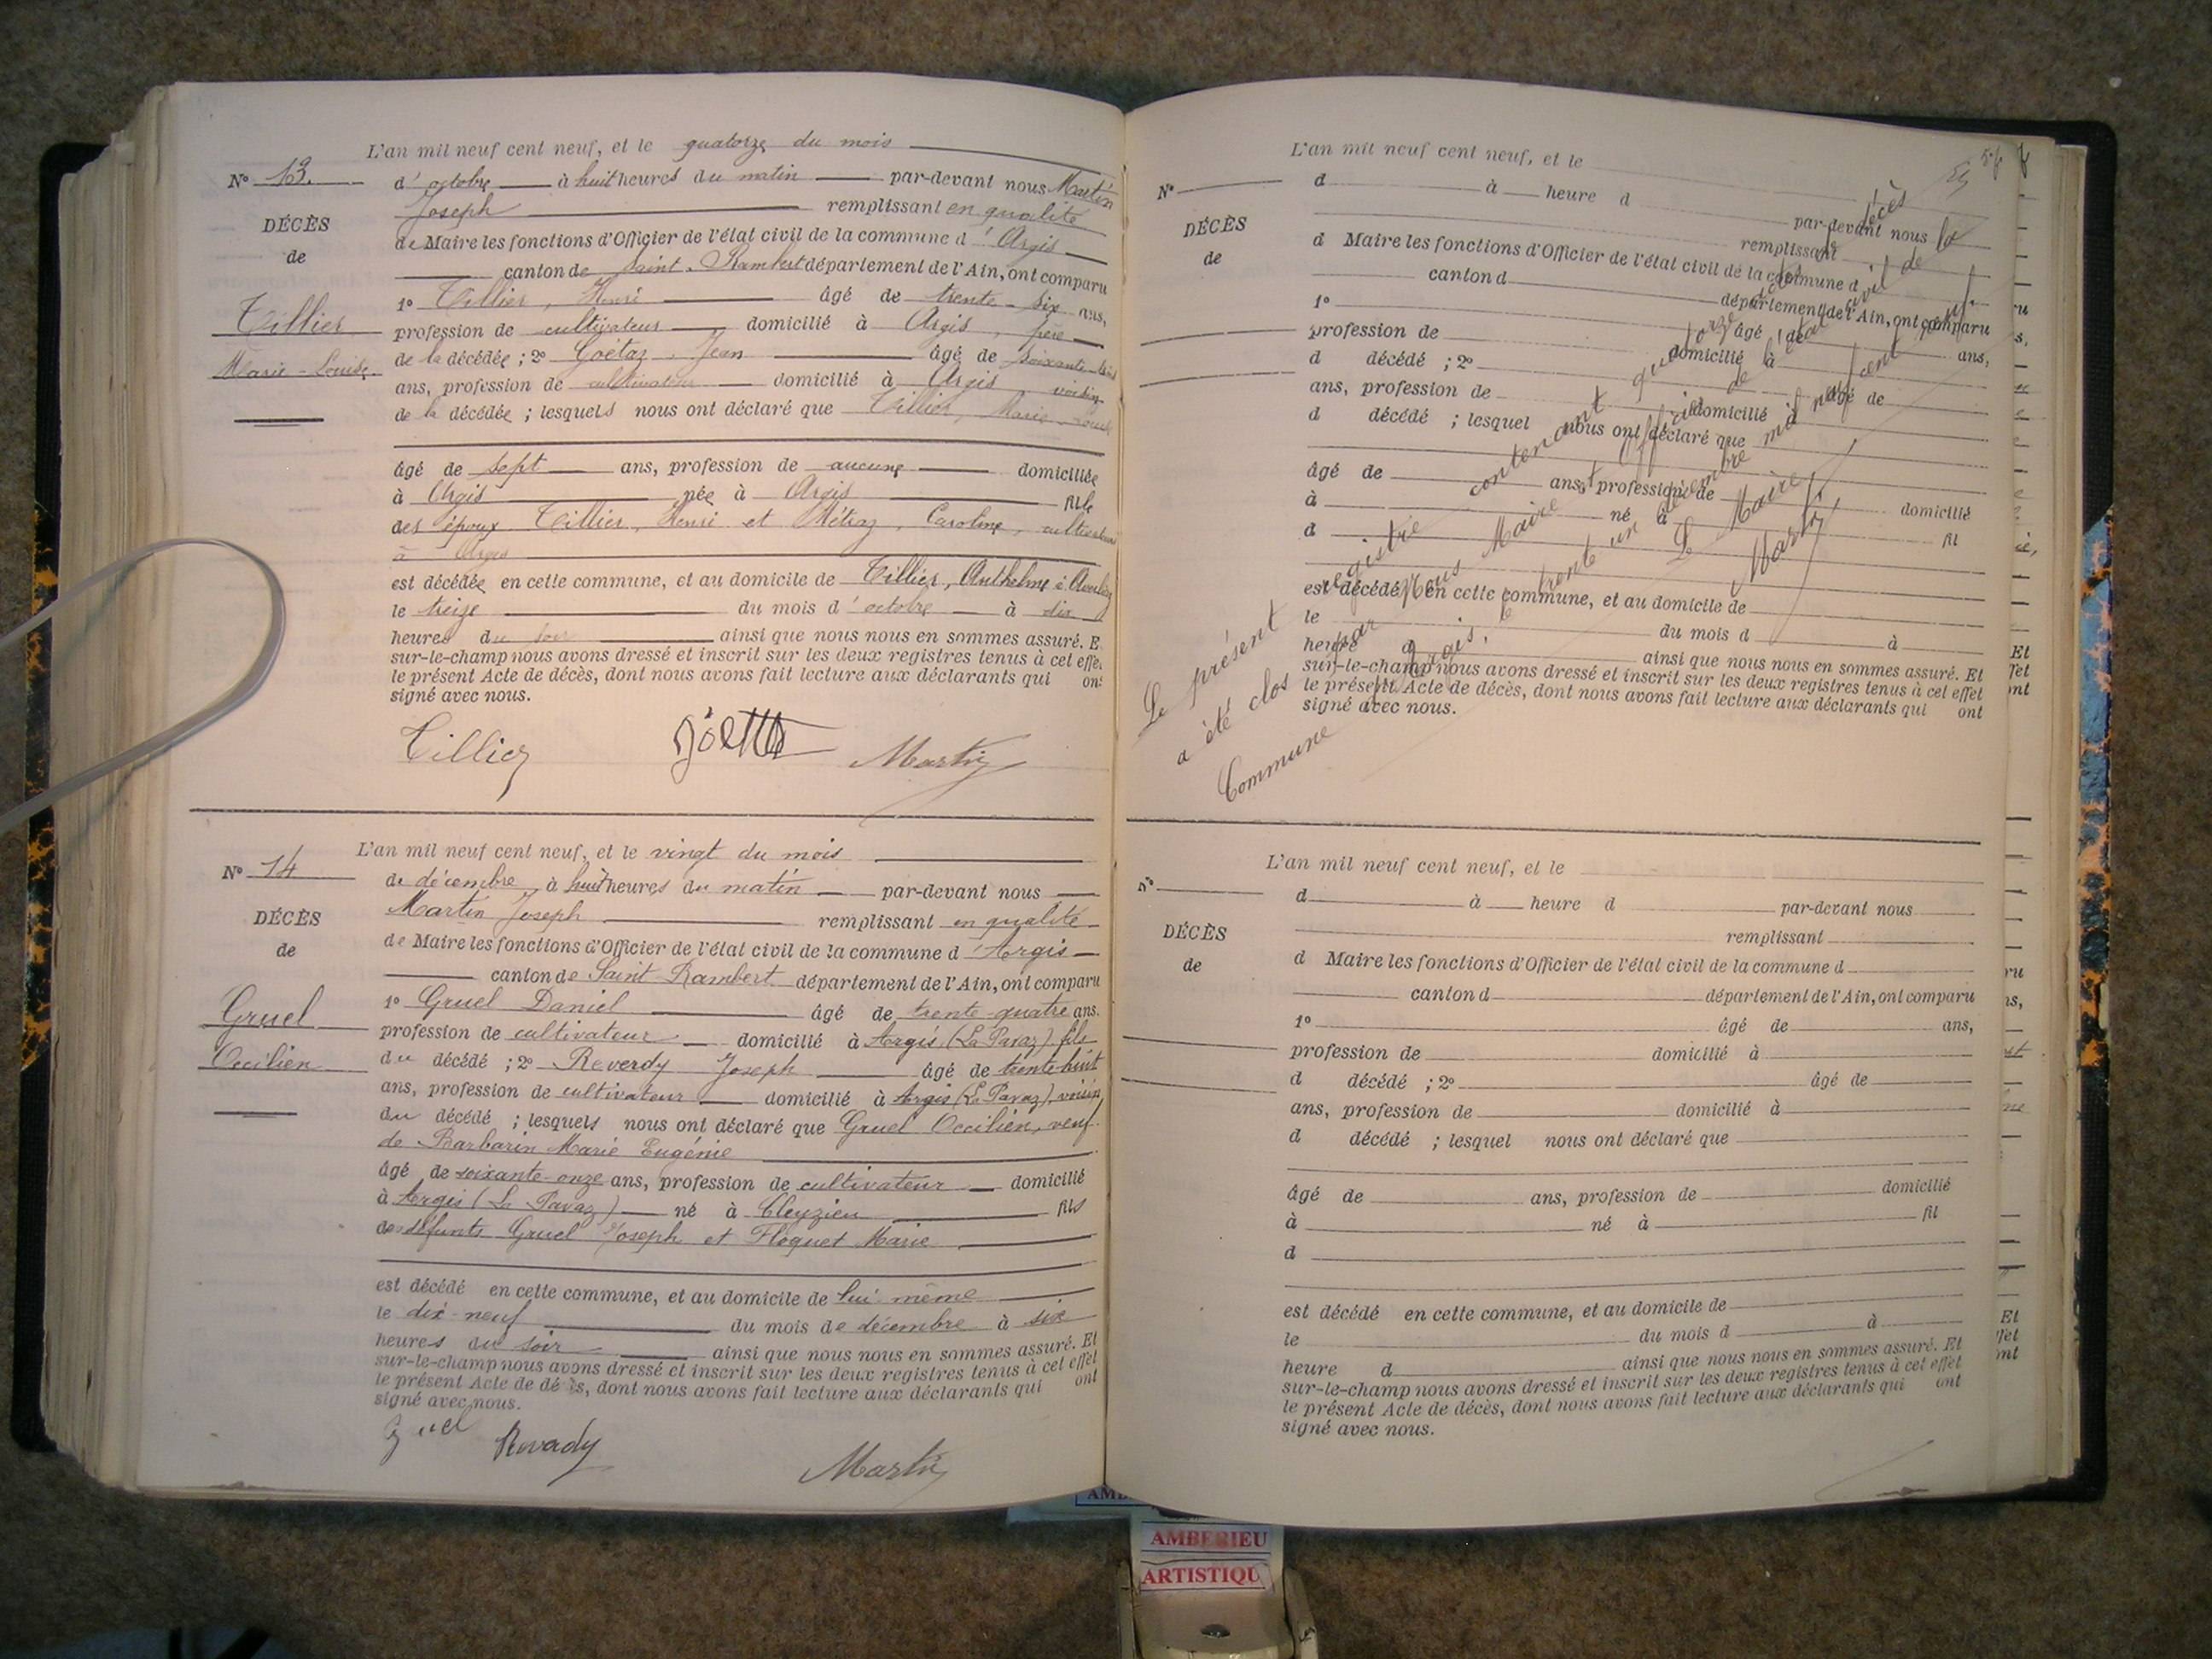 L'an mil neuf cent neuf, et le quatorze du mois
N° 13. d'octobre à huit heures du matin par-devant nous Martin
Joseph remplissant en qualité
DÉCÈS de Maire les fonctions d'Officier de l'état civil de la commune d'Argis
de canton de Saint-Rambert département de l'Ain, ont comparu
1° Tillier, Henri âgé de trente-six ans,
Tillier profession de cultivateur domicilié à Argis, père
de la décédée ; 2° Goëtaz, Jean âgé de soixante-trois
Marie-Louise ans, profession de cultivateur domicilié à Argis, voisin
de la décédée ; lesquels nous ont déclaré que Tillier, Marie-Louise
âgé de sept ans, profession de aucune domiciliée
à Argis née à Argis fille
des époux Tillier, Henri et Métraz, Caroline, cultivateurs
à Argis
est décédée en cette commune, et au domicile de Tillier, Anthelme à
le treize du mois d'octobre à dix
heures du soir ainsi que nous nous en sommes assuré. E
sur-le-champ nous avons dressé et inscrit sur les deux registres tenus à cet effe
le présent Acte de décès, dont nous avons fait lecture aux déclarants qui on
signé avec nous.
Tillier Martin
L'an mil neuf cent neuf, et le vingt du mois
N° 14 de décembre à huit heures du matin par-devant nous
Martin Joseph remplissant en qualité
DÉCÈS de Maire les fonctions d'Officier de l'état civil de la commune d'Argis
de canton de Saint Rambert département de l'Ain, ont comparu
1° Gruel Daniel âgé de trente-quatre ans.
Gruel profession de cultivateur domicilié à Argis (La Pavaz) fils
Occilien du décédé ; 2° Reverdy Joseph âgé de trente huit
ans, profession de cultivateur domicilié à Argis (La Pavaz), voisin
du décédé ; lesquels nous ont déclaré que Gruel Occilien, veuf
de Barbarin Marie Eugénie
âgé de soixante-onze ans, profession de cultivateur domicilié
à Argis (La Pavaz) né à Cleyzieu fils
des défunts Gruel Joseph et Floquet Marie
est décédé en cette commune, et au domicile de lui-même
le dix-neuf du mois de décembre à six
heures du soir ainsi que nous nous en sommes assuré. Et
sur-le-champ nous avons dressé et inscrit sur les deux registres tenus à cet effet
le présent Acte de décès, dont nous avons fait lecture aux déclarants qui ont
signé avec nous.
Gruel Reverdy Martin
L'an mil neuf cent neuf, et le
N° d à heure d par-devant nous
remplissant
DÉCÈS d Maire les fonctions d'Officier de l'état civil de la commune d
de canton d département de l'Ain, ont comparu
1° âgé de ans,
profession de domicilié à
d décédé ; 2° âgé de
ans, profession de domicilié à
d décédé ; lesquel nous ont déclaré que
âgé de ans, profession de domicilié
à né à fil
d
est décédé en cette commune, et au domicile de
le du mois d à
heure d ainsi que nous nous en sommes assuré. Et
sur-le-champ nous avons dressé et inscrit sur les deux registres tenus à cet effet
le présent Acte de décès, dont nous avons fait lecture aux déclarants qui ont
signé avec nous.
Le présent registre contenant quatorze actes de décès
a été clos par Nous Maire et Officier de l'état civil de la
Commune d'Argis, le trente un décembre mil neuf cent neuf.
Le Maire,
Martin
L'an mil neuf cent neuf, et le
N° d à heure d par-devant nous
remplissant
DÉCÈS d Maire les fonctions d'Officier de l'état civil de la commune d
de canton d département de l'Ain, ont comparu
1° âgé de ans,
profession de domicilié à
d décédé ; 2° âgé de
ans, profession de domicilié à
d décédé ; lesquel nous ont déclaré que
âgé de ans, profession de domicilié
à né à fil
d
est décédé en cette commune, et au domicile de
le du mois d à
heure d ainsi que nous nous en sommes assuré. Et
sur-le-champ nous avons dressé et inscrit sur les deux registres tenus à cet effet
le présent Acte de décès, dont nous avons fait lecture aux déclarants qui ont
signé avec nous.
AMBERIEU
ARTISTIQU